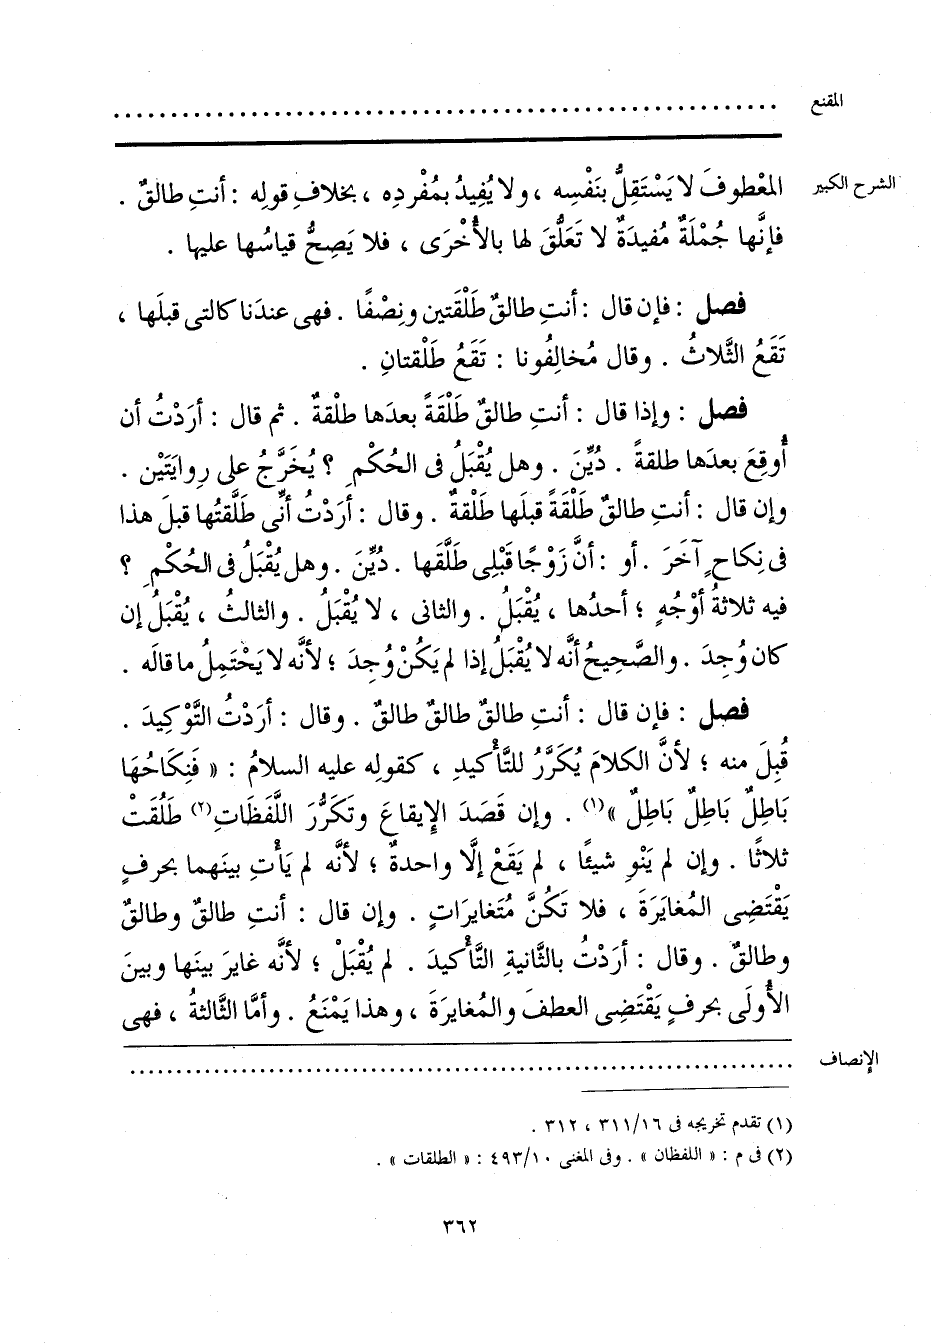 المقنع ..........................................................
الشرح الكبير المَعْطوفَ لا يَسْتَقِلُّ بنَفْسِه ، ولا يُفِيدُ بمُفْرِدِه ، بخلافِ قولِه : أنتِ طالقٌ .
فإنَّها جُمْلَةٌ مُفيدَةٌ لا تَعَلُّقَ لها بالأُخْرَى ، فلا يَصِحُّ قياسُها عليها .
فصل : فإن قال : أنتِ طالقٌ طَلْقَتين ونِصْفًا . فهى عندَنا كالتى قبلَها ،
تَقَعُ الثَّلاثُ . وقال مُخالِفُونا : تَقَعُ طَلْقتانِ .
فصل : وإذا قال : أنتِ طالقٌ طَلْقَةً بعدَها طلْقةٌ . ثم قال : أرَدْتُ أن
أُوقِعَ بعدَها طلقةً . دُيِّنَ . وهل يُقْبَلُ فى الحُكْمِ ؟ يُخَرَّجُ على رِوايَتَيْن .
وإن قال : أنتِ طالقٌ طَلْقَةً قبلَها طَلْقةٌ . وقال : أرَدْتُ أنِّى طَلَّقتُها قبلَ هذا
فى نِكاحٍ آخَرَ . أو : أنَّ زَوْجًا قَبْلِى طَلَّقَها . دُيِّنَ . وهل يُقْبَلُ فى الحُكْمِ ؟
فيه ثلاثةُ أوْجُهٍ ؛ أحدُها ، يُقْبَلُ . والثانى ، لا يُقْبَلُ . والثالثُ ، يُقْبَلُ إن
كان وُجِدَ . والصَّحِيحُ أنَّه لا يُقْبَلُ إذا لم يَكُنْ وُجِدَ ؛ لأنَّه لا يَحْتَمِلُ ما قالَه .
فصل : فإن قال : أنتِ طالقٌ طالقٌ طالقٌ . وقال : أرَدْتُ التَّوْكِيدَ .
قُبِلَ منه ؛ لأنَّ الكلامَ يُكَرَّرُ للتَّأْكيدِ ، كقولِه عليه السلامُ : « فَنِكَاحُهَا
بَاطِلٌ بَاطِلٌ بَاطِلٌ »(١) . وإن قَصَدَ الإِيقاعَ وتَكَرُّرَ اللَّفَظَاتِ(٢) طَلُقَتْ
ثلاثًا . وإن لم يَنْوِ شيئًا ، لم يَقَعْ إلَّا واحدةٌ ؛ لأنَّه لم يَأْتِ بينَهما بحرفٍ
يَقْتَضِى المُغايَرَةَ ، فلا تَكُنَّ مُتَغايِرَاتٍ . وإن قال : أنتِ طالقٌ وطالقٌ
وطالقٌ . وقال : أرَدْتُ بالثَّانيةِ التَّأْكيدَ . لم يُقْبَلْ ؛ لأنَّه غايرَ بينَها وبينَ
الأُولَى بحرفٍ يَقْتَضِى العطفَ والمُغايرَةَ ، وهذا يَمْنَعُ . وأمَّا الثَّالثةُ ، فهى
الإنصاف ..........................................................
(١) تقدم تخريجه فى ٣١١/١٦ ، ٣١٢ .
(٢) فى م : « اللفظان » . وفى المغنى ٤٩٣/١٠ : « الطلقات » .
٣٦٢